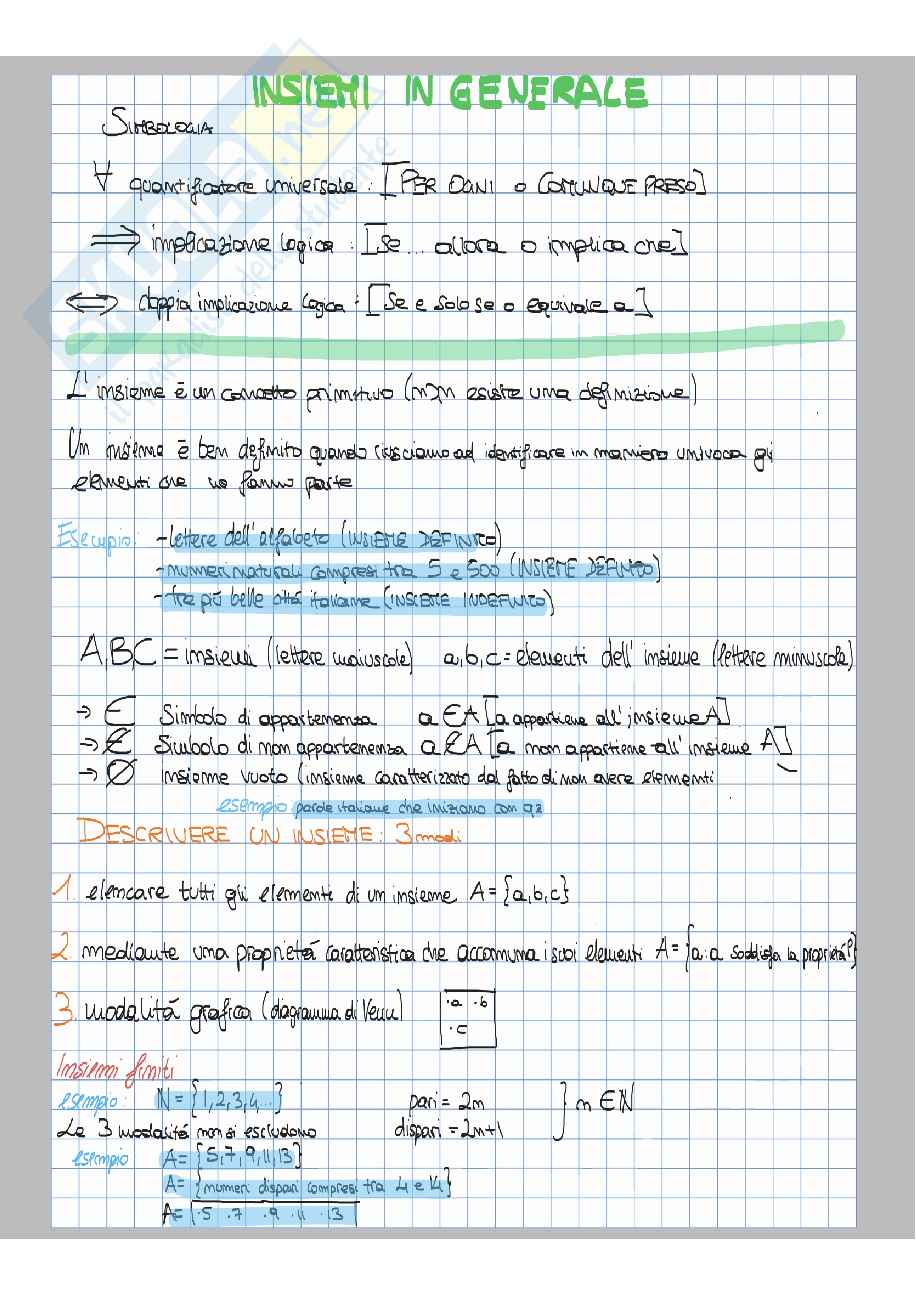 INSIEMI IN GENERALE
SIMBOLOGIA
∀ quantificatore universale : [PER OGNI o COMUNQUE PRESO]
⟹ implicazione logica : [Se... allora o implica che]
⟺ doppia implicazione logica : [Se e solo se o equivale a]
L' insieme è un concetto primitivo (non esiste una definizione)
Un insieme è ben definito quando riusciamo ad identificare in maniera univoca gli
elementi che ne fanno parte
Esempio: -lettere dell'alfabeto (INSIEME DEFINITO)
-numeri naturali compresi tra 5 e 500 (INSIEME DEFINITO)
-tre più belle città italiane (INSIEME INDEFINITO)
A,B,C = insiemi (lettere maiuscole) a,b,c = elementi dell' insieme (lettere minuscole)
→ ∈ Simbolo di appartenenza a ∈ A [a appartiene all'insieme A]
→ ∉ Simbolo di non appartenenza a ∉ A [a non appartiene all'insieme A]
→ ∅ insieme vuoto (insieme caratterizzato dal fatto di non avere elementi
esempio parole italiane che iniziano con qz
DESCRIVERE UN INSIEME: 3 modi
1. elencare tutti gli elementi di un insieme A = {a,b,c}
2. mediante una proprietá caratteristica che accomuna i suoi elementi A = {a: a soddisfa la proprietá P}
3. modalitá grafica (diagramma di Venn) ·a ·b
·c
Insiemi finiti
esempio: N = {1,2,3,4,...} pari = 2n } n ∈ N
Le 3 modalitá non si escludono dispari = 2n+1
esempio A= {5,7,9,11,13}
A= {numeri dispari compresi tra 4 e 14}
A= ·5 ·7 ·9 ·11 ·13